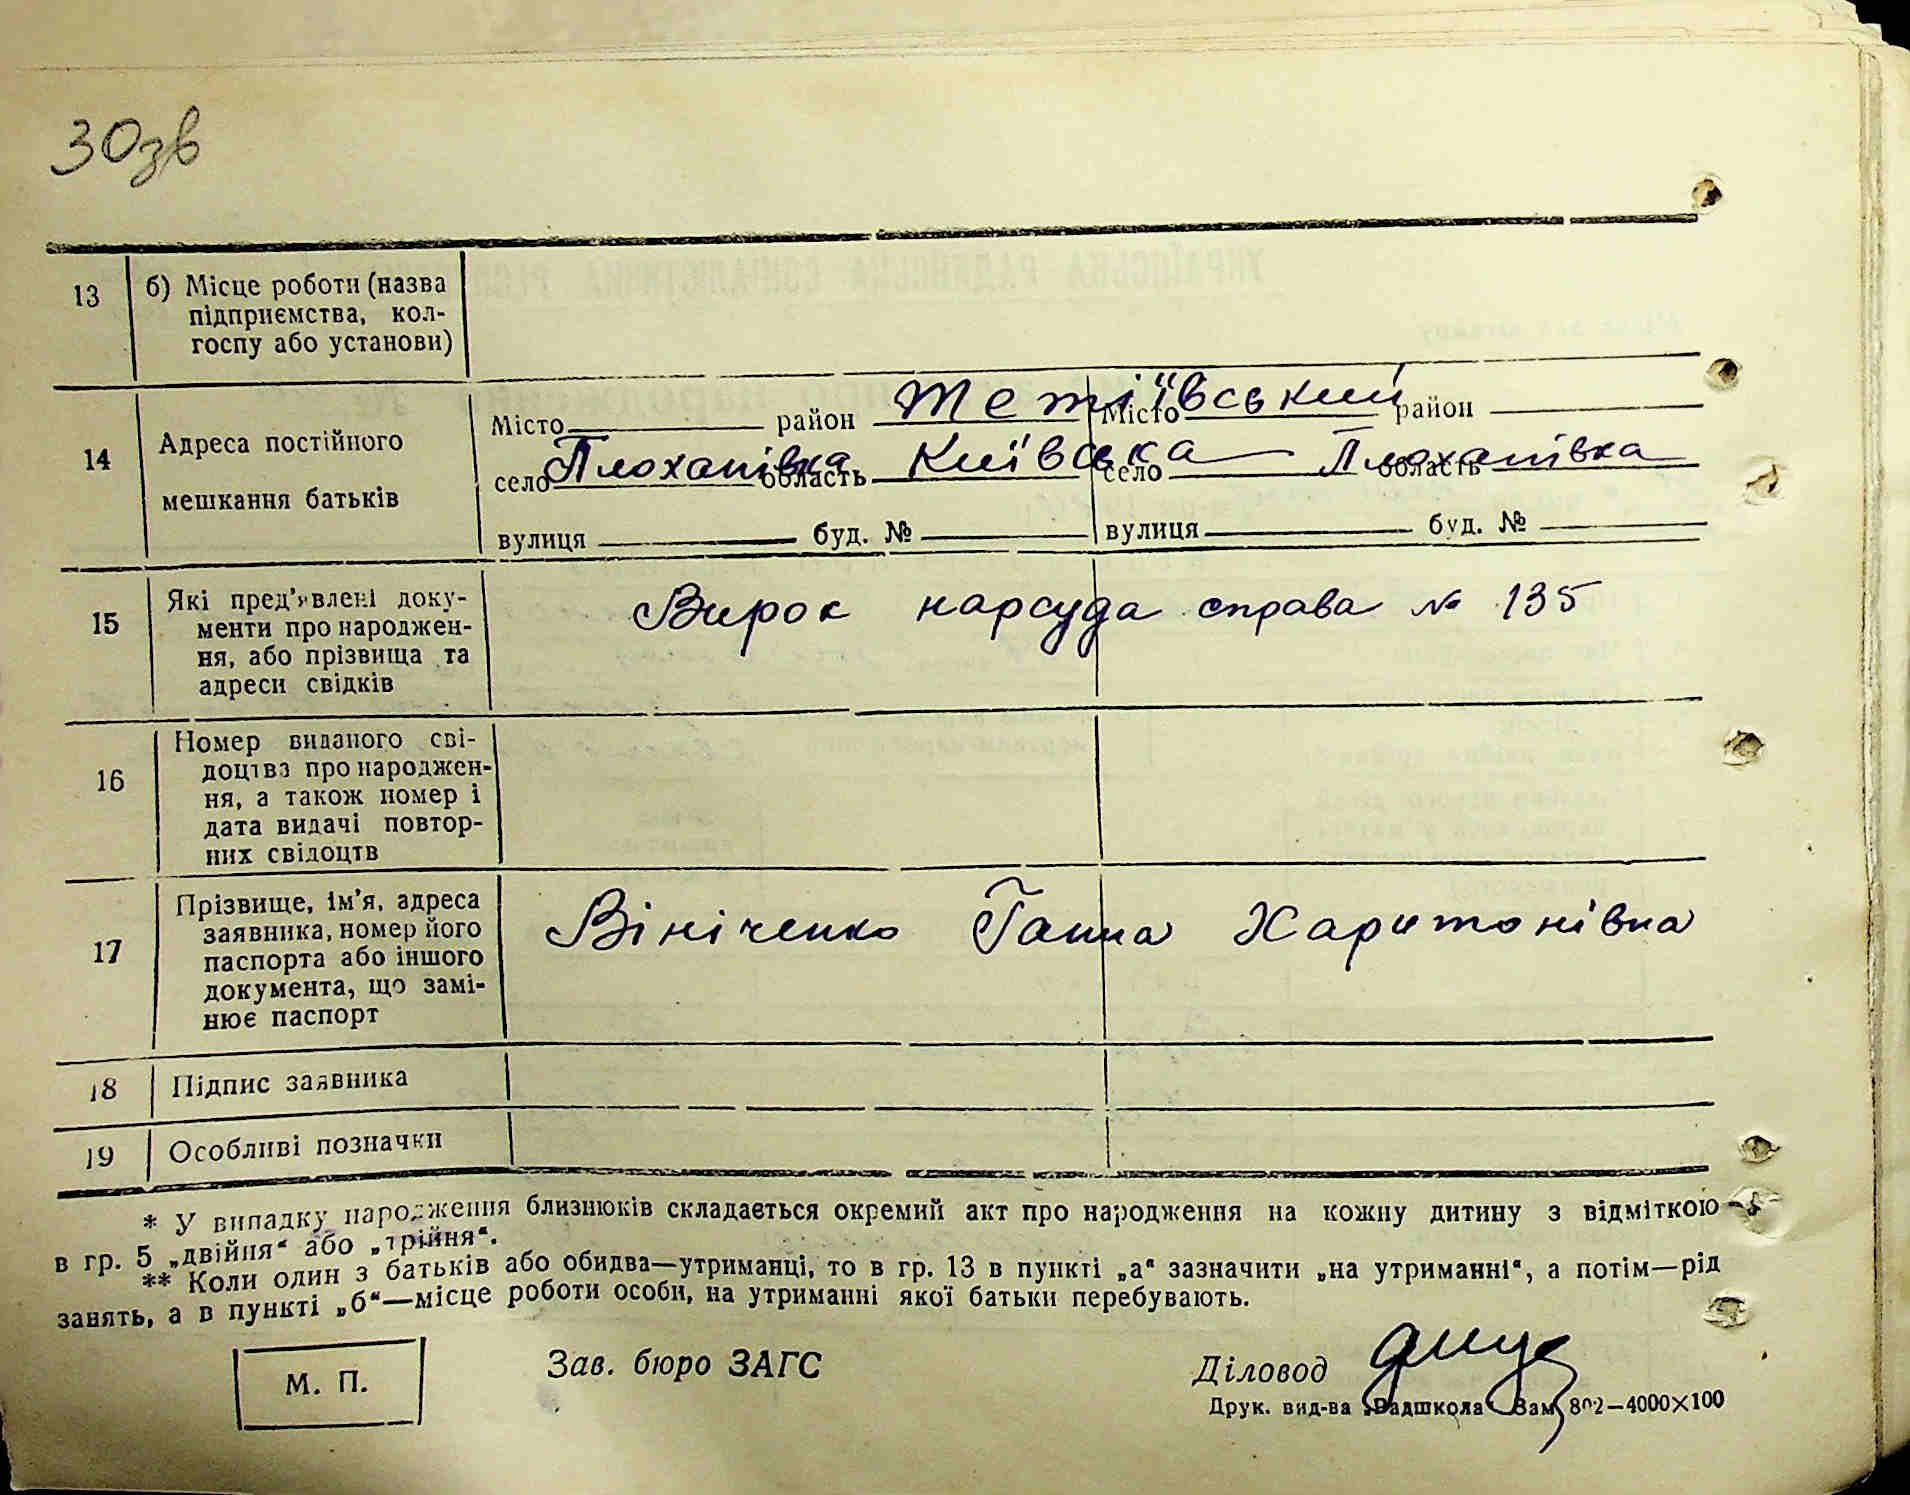 30зв
13 б) Місце роботи (назва
підприємства, кол-
госпу або установи)
14 Адреса постійного
мешкання батьків
Місто район Тетіївський Місто район
село Плоханівка область Київська село Плоханівка область
вулиця буд. № вулиця буд. №
15 Які пред'явлені доку-
менти про народжен-
ня, або прізвища та
адреси свідків
Вирок нарсуда справа № 135
16 Номер виданого сві-
доцтва про народжен-
ня, а також номер і
дата видачі повтор-
них свідоцтв
17 Прізвище, ім'я, адреса
заявника, номер його
паспорта або іншого
документа, що замі-
нює паспорт
Вініченко Ганна Харитонівна
18 Підпис заявника
19 Особливі позначки
* У випадку народження близнюків складається окремий акт про народження на кожну дитину з відміткою
в гр. 5 „двійня“ або „трійня“.
** Коли один з батьків або обидва—утриманці, то в гр. 13 в пункті „а“ зазначити „на утриманні“, а потім—рід
занять, а в пункті „б“—місце роботи особи, на утриманні якої батьки перебувають.
М. П.
Зав. бюро ЗАГС
Діловод
Друк. вид-ва „Радшкола“ Зам. 802—4000×100